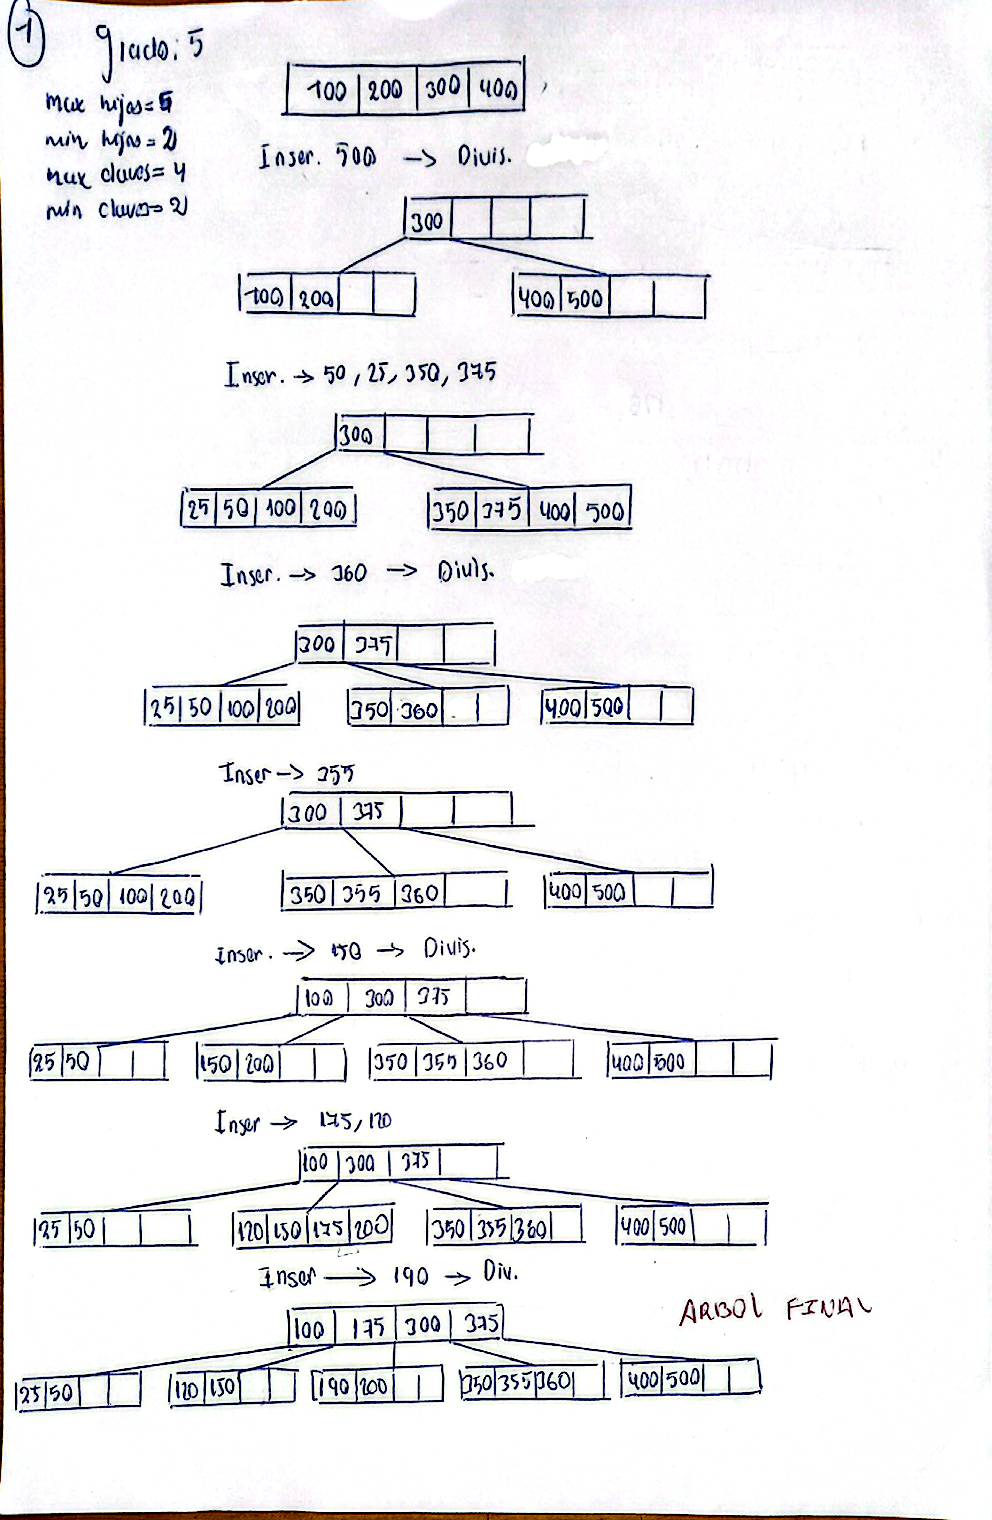 1
grado: 5
max hijos= 5
min hijos= 2
max claves= 4
min claves= 2
100 200 300 400
Inser. 500 -> Divis.
300
100 200 400 500
Inser. -> 50, 25, 350, 375
300
25 50 100 200 350 375 400 500
Inser. -> 360 -> Divis.
300 375
25 50 100 200 350 360 400 500
Inser -> 355
300 375
25 50 100 200 350 355 360 400 500
Inser. -> 150 -> Divis.
100 300 375
25 50 150 200 350 355 360 400 500
Inser -> 175, 120
100 300 375
25 50 120 150 175 200 350 355 360 400 500
Inser -> 190 -> Div.
ARBOL FINAL
100 175 300 375
25 50 120 150 190 200 350 355 360 400 500